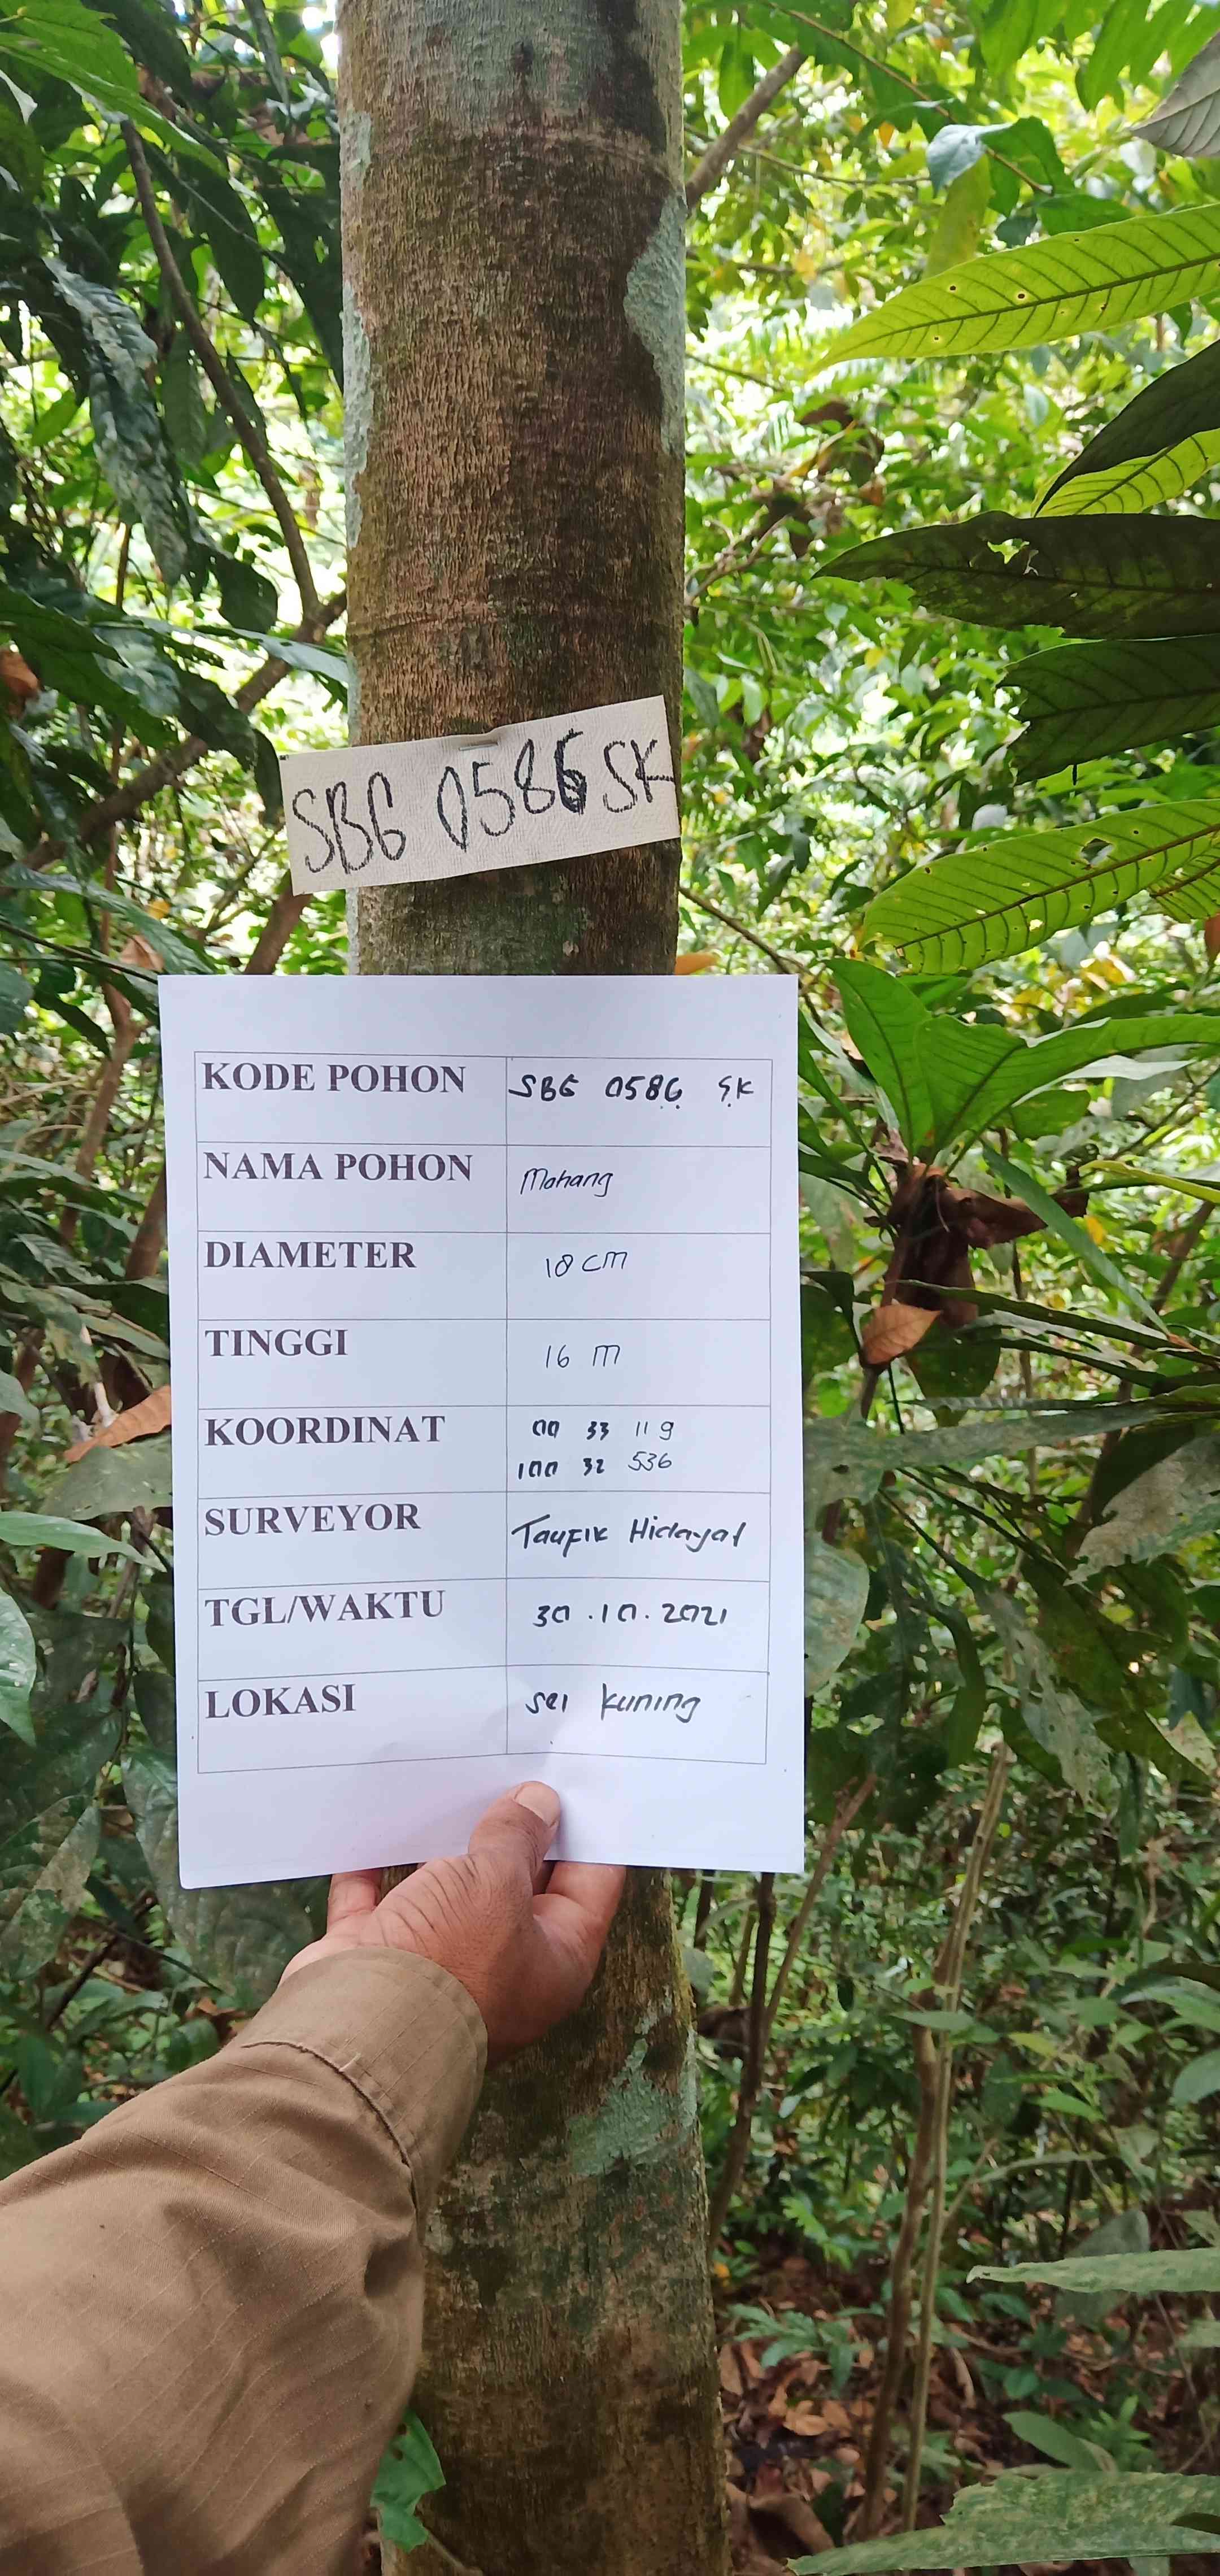 SBG 0586 SK
KODE POHON SBG 0586 SK
NAMA POHON Mahang
DIAMETER 18 cm
TINGGI 16 m
KOORDINAT 00 33 119
100 32 536
SURVEYOR Taufik Hidayat
TGL/WAKTU 30.10.2021
LOKASI sei kuning